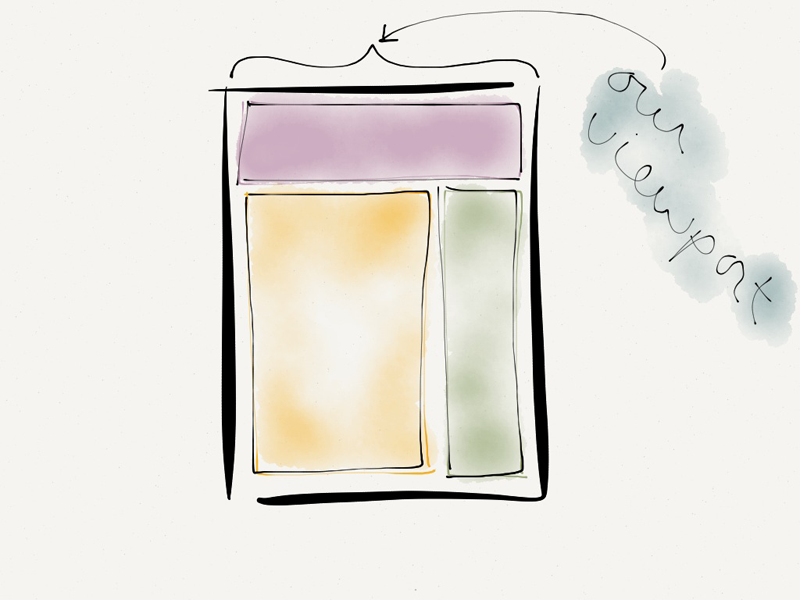 our
viewport